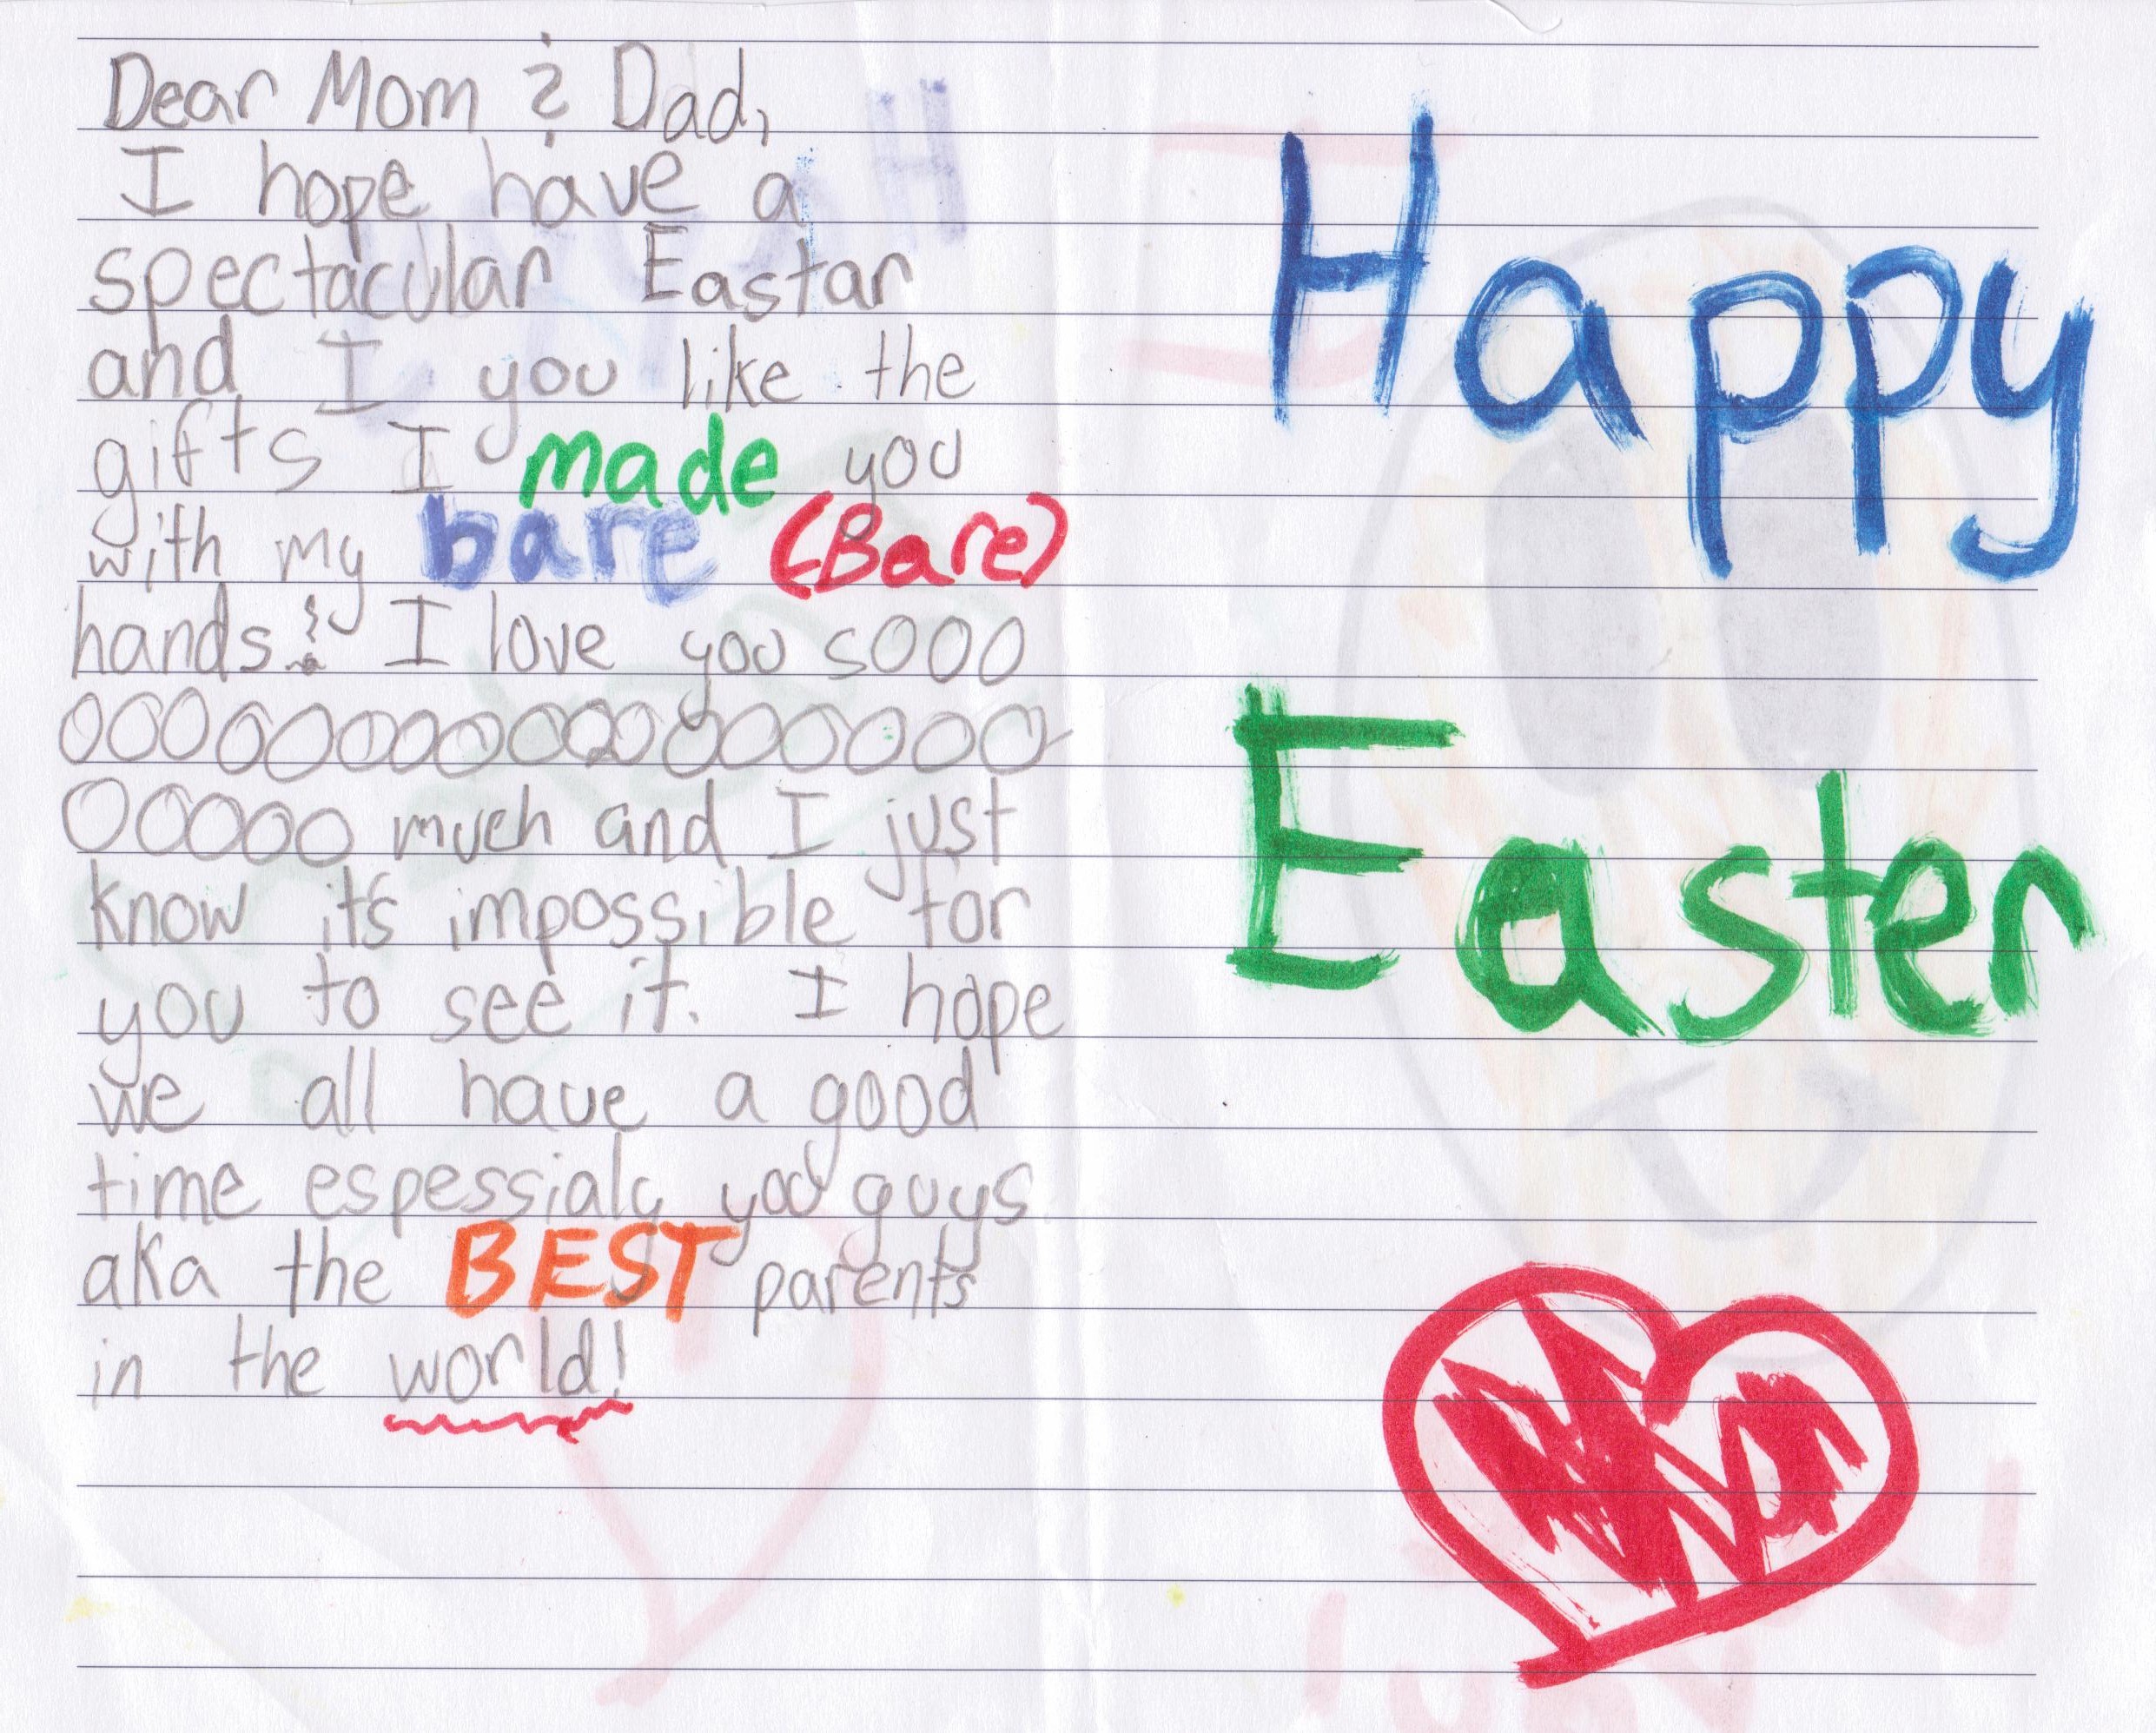 Dear Mom & Dad,
I hope have a
spectacular Eastar
and I you like the
gifts I made you
with my bare (Bare)
hands! I love you sooo
oooooooooooooooooo
ooooo much and I just
know it's impossible for
you to see it. I hope
we all have a good
time espessialy you guys
aka the BEST parents
in the world!
Happy
Easter